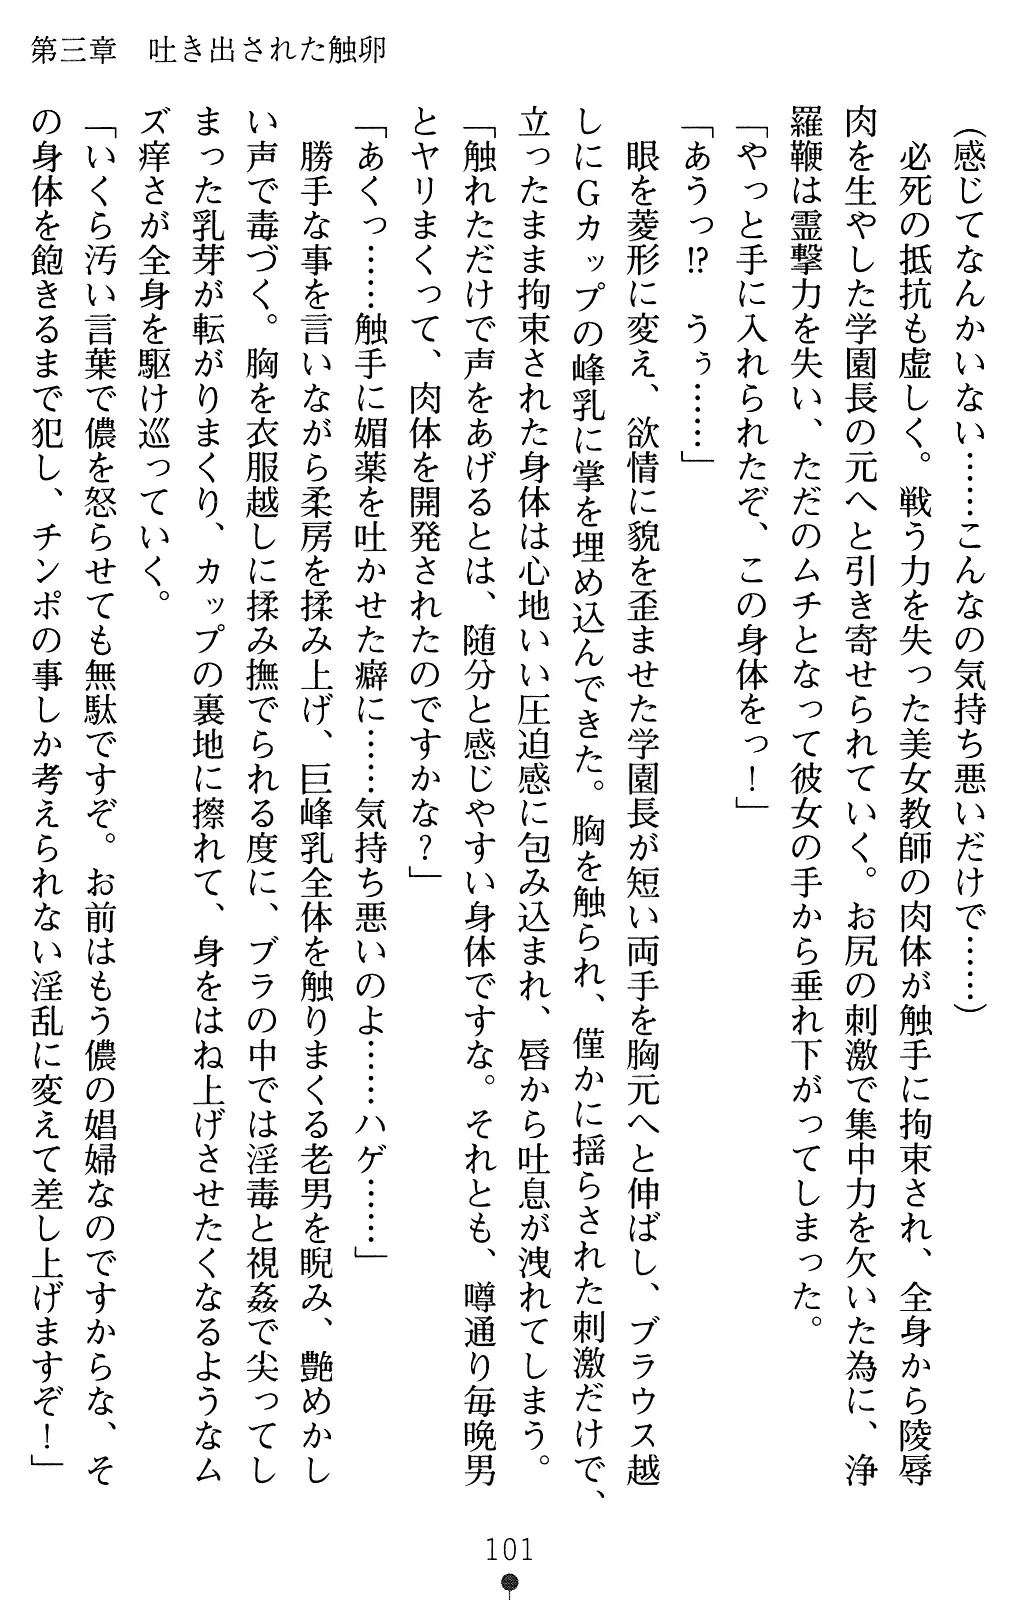 第三章　吐き出された触卵
（感じてなんかいない……こんなの気持ち悪いだけで……）
　必死の抵抗も虚しく。戦う力を失った美女教師の肉体が触手に拘束され、全身から陵辱
肉を生やした学園長の元へと引き寄せられていく。お尻の刺激で集中力を欠いた為に、浄
羅鞭は霊撃力を失い、ただのムチとなって彼女の手から垂れ下がってしまった。
「やっと手に入れられたぞ、この身体をっ！」
「あうっ!?　うぅ……」
　眼を菱形に変え、欲情に貌を歪ませた学園長が短い両手を胸元へと伸ばし、ブラウス越
しにGカップの峰乳に掌を埋め込んできた。胸を触られ、僅かに揺らされた刺激だけで、
立ったまま拘束された身体は心地いい圧迫感に包み込まれ、唇から吐息が洩れてしまう。
「触れただけで声をあげるとは、随分と感じやすい身体ですな。それとも、噂通り毎晩男
とヤリまくって、肉体を開発されたのですかな？」
「あくっ……触手に媚薬を吐かせた癖に……気持ち悪いのよ……ハゲ……」
　勝手な事を言いながら柔房を揉み上げ、巨峰乳全体を触りまくる老男を睨み、艶めかし
い声で毒づく。胸を衣服越しに揉み撫でられる度に、ブラの中では淫毒と視姦で尖ってし
まった乳芽が転がりまくり、カップの裏地に擦れて、身をはね上げさせたくなるようなム
ズ痒さが全身を駆け巡っていく。
「いくら汚い言葉で儂を怒らせても無駄ですぞ。お前はもう儂の娼婦なのですからな、そ
の身体を飽きるまで犯し、チンポの事しか考えられない淫乱に変えて差し上げますぞ！」
101